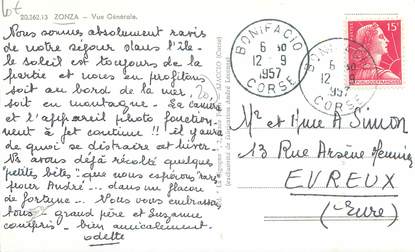 20.262.13 ZONZA — Vue Générale.
Nous sommes absolument ravis
de notre séjour dans l'île-
le soleil est toujours de la
partie et nous en profitons
soit au bord de la mer,
soit en montagne. La caméra
et l'appareil photo fonction-
nent à jet continu !! il y aura
de quoi se distraire cet hiver.
Ns avons déjà récolté quelques
"petites bêtes" que nous espérons "rares"
pour André... dans un flacon
de fortune... Nous vous embrassons
tous - grand père et Suzanne
compris - bien amicalement.
Odette
BONIFACIO
6 30
12 - 9
1957
CORSE
12 - 9
1957
CORSE
15F
Mr et Mme A Simon
13 Rue Arsène Meunier
EVREUX
(Eure)